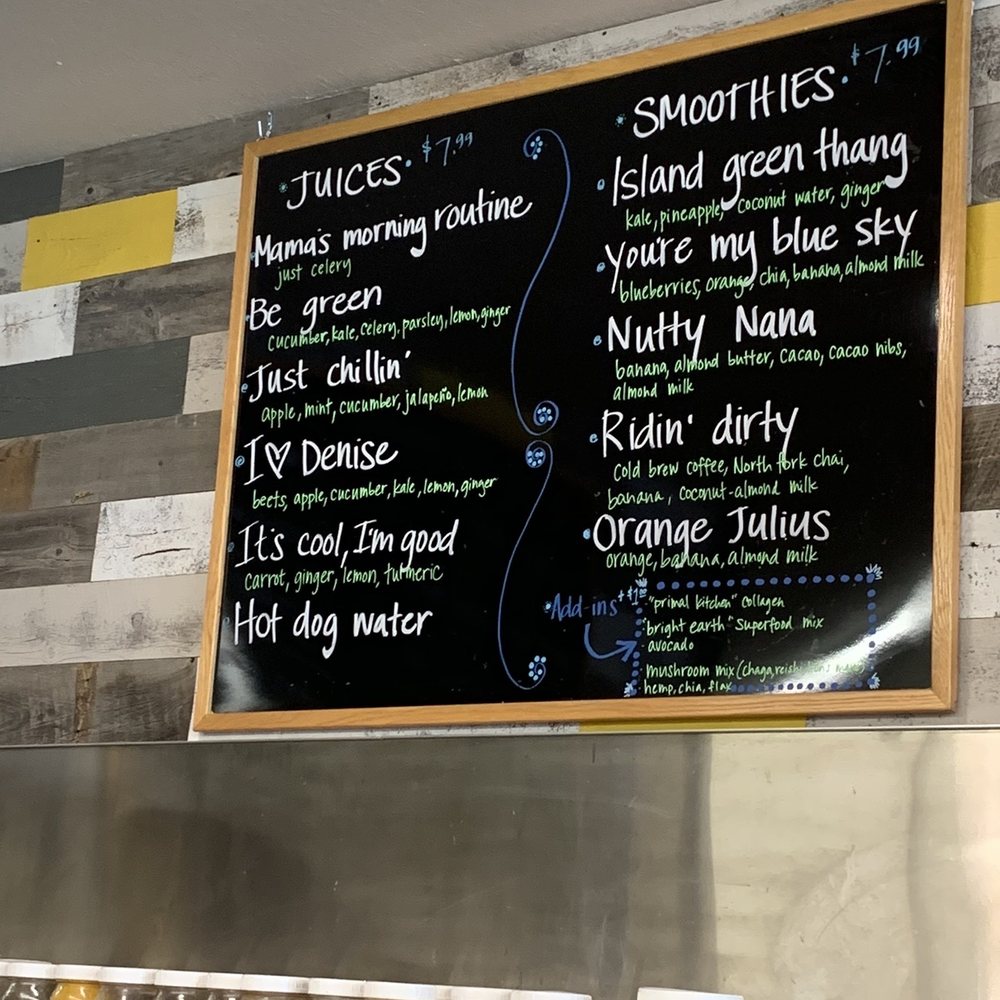 JUICES. $7.99
Mama's morning routine
just celery
Be green
cucumber, kale, celery, parsley, lemon, ginger
Just chillin'
apple, mint, cucumber, jalapeño, lemon
I ♡ Denise
beets, apple, cucumber, kale, lemon, ginger
It's cool, I'm good
carrot, ginger, lemon, turmeric
Hot dog water
SMOOTHIES. $7.99
Island green thang
kale, pineapple, coconut water, ginger
You're my blue sky
blueberries, orange, chia, banana, almond milk
Nutty Nana
banana, almond butter, cacao, cacao nibs,
almond milk
Ridin' dirty
cold brew coffee, North fork chai,
banana, coconut-almond milk
Orange Julius
orange, banana, almond milk
Add-ins
"primal kitchen" collagen
"bright earth" superfood mix
avocado
mushroom mix (chaga, reishi,
hemp, chia, flax